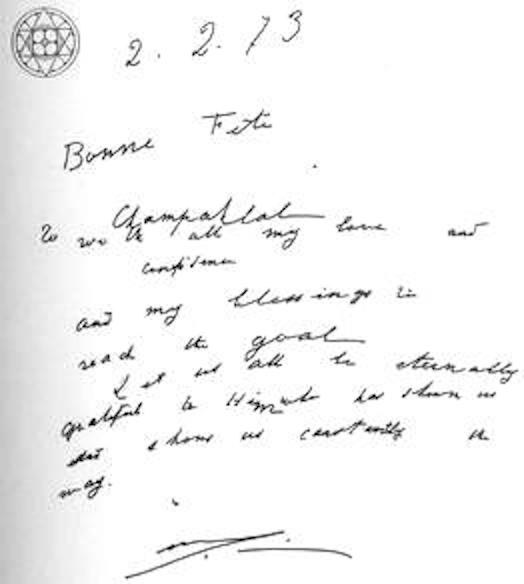 2. 2. 73
Bonne Fête
to Champaklal
with all my love and
confidence
and my blessings to
reach the goal
Let us all be eternally
grateful to Him who has shown us
and shows us constantly the
way.